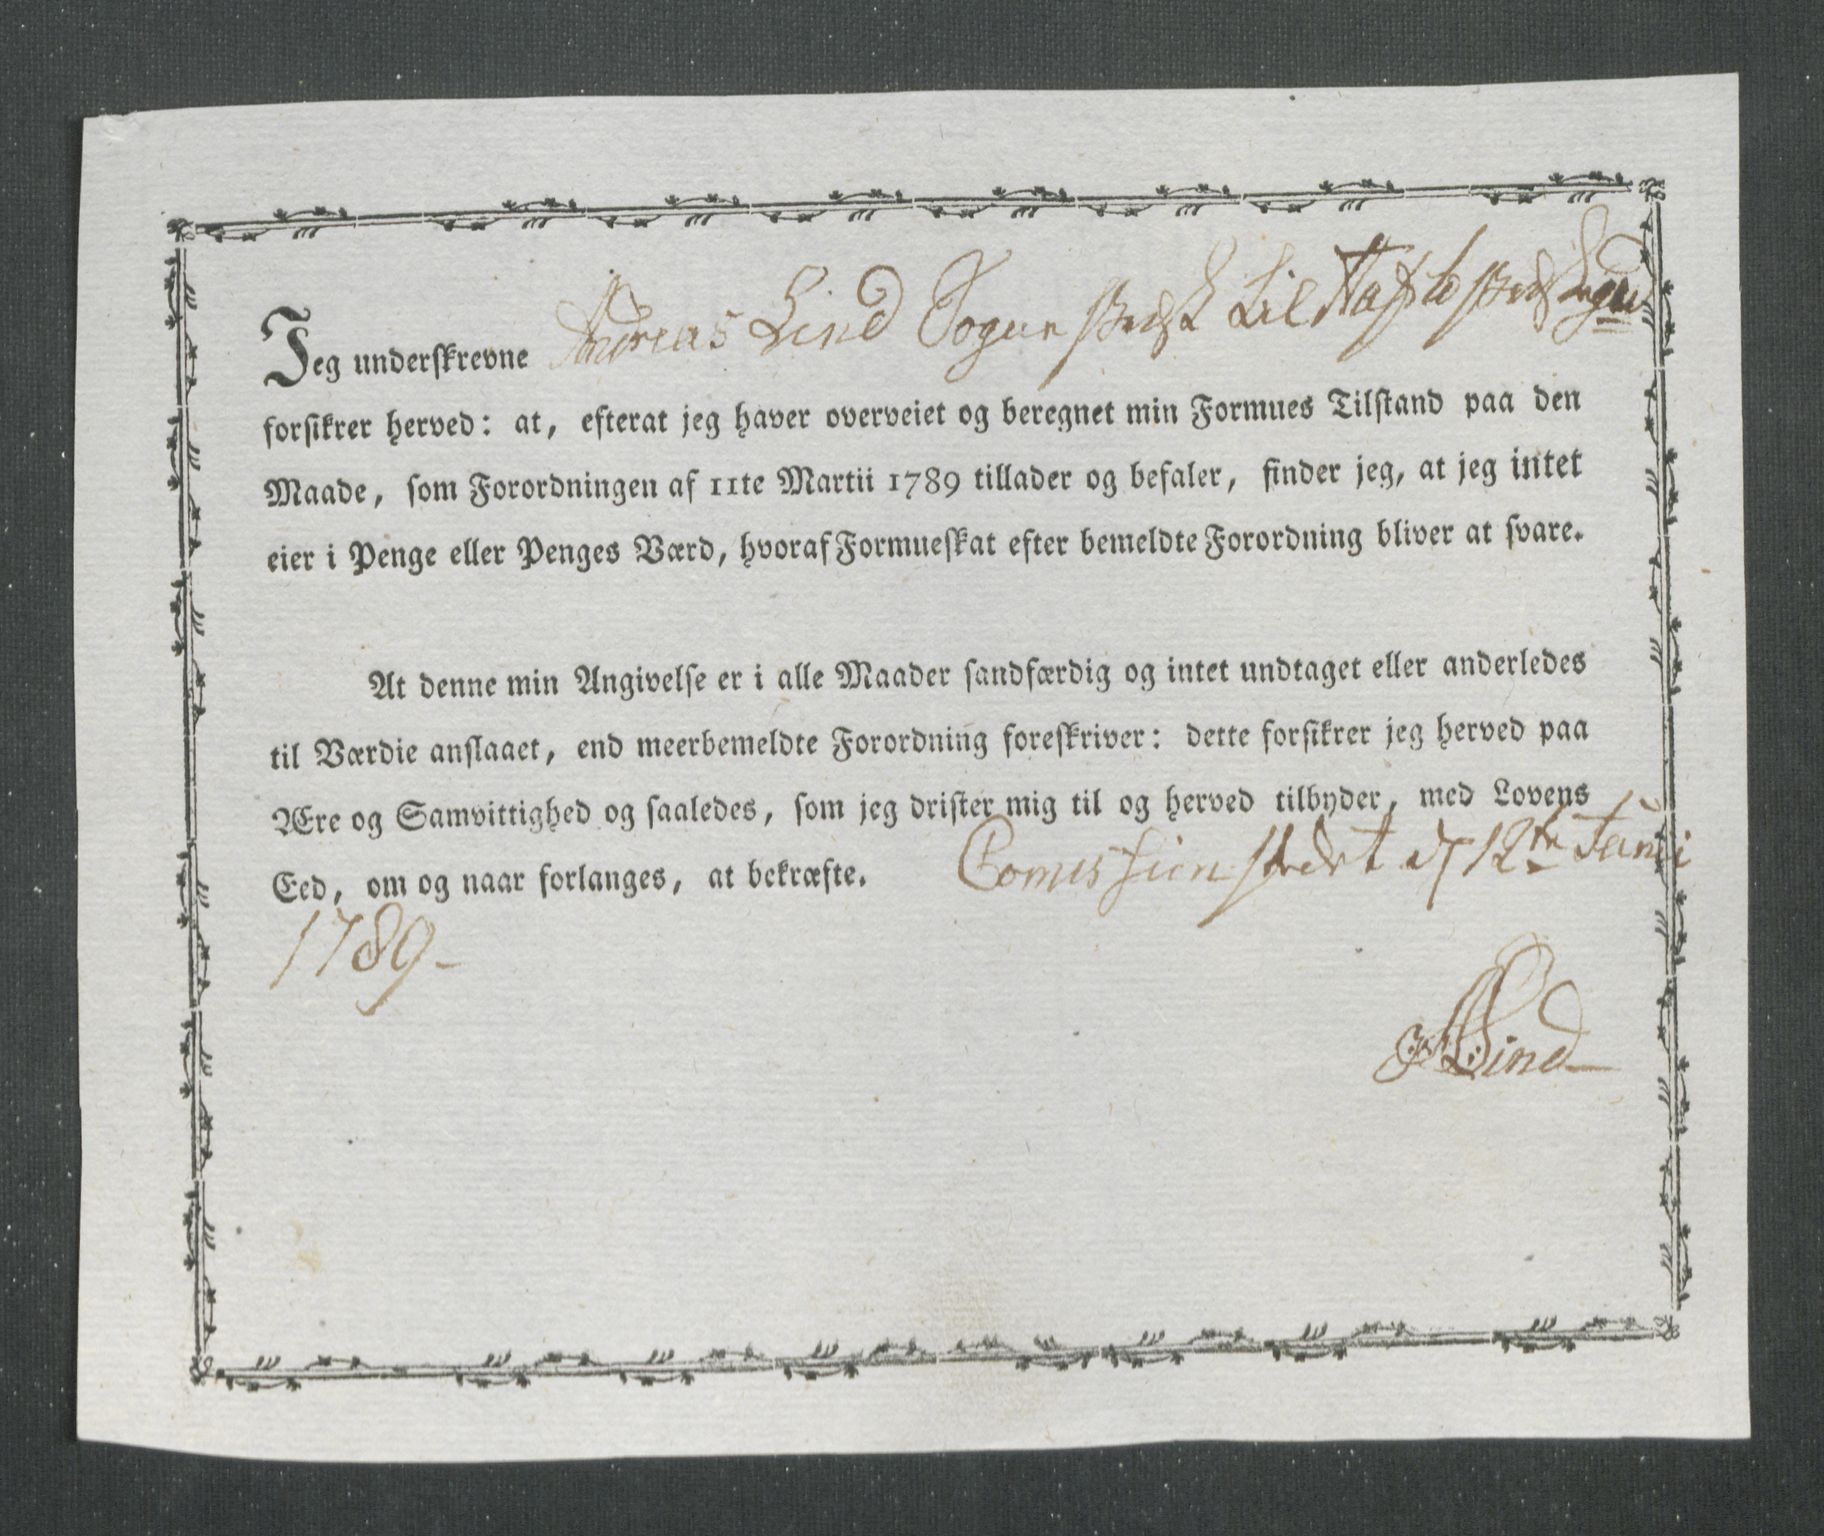 Jeg underskrevne Andreas Lind Sogne Præst til
forsikrer herved: at, efterat jeg haver overveiet og beregnet min Formues Tilstand paa den
Maade, som Forordningen af 11te Martii 1789 tillader og befaler, finder jeg, at jeg intet
eier i Penge eller Penges Værd, hvoraf Formueskat efter bemeldte Forordning bliver at svare.
At denne min Angivelse er i alle Maader sandfærdig og intet undtaget eller anderledes
til Værdie anslaaet, end meerbemeldte Forordning foreskriver: dette forsikrer jeg herved paa
Ære og Samvittighed og saaledes, som jeg drister mig til og herved tilbyder, med Lovens
Eed, om og naar forlanges, at bekræfte. 12te
1789
Lind